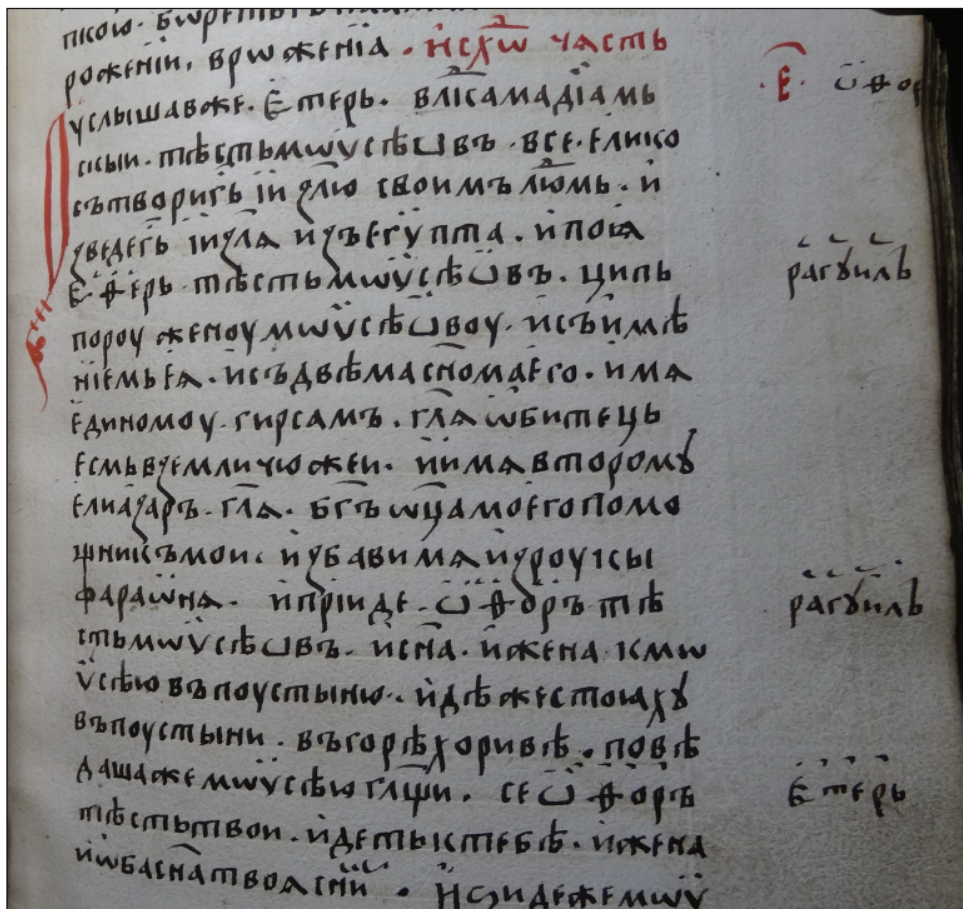 пкою. бѡретъ гь
роженїи. врѡженїа. исхѡ часть
.є.
услышавже. єтерь. влⷣка мадїамь
скыи. тѣстьмѡѵсѣѡвъ. все. єлико
сътвориг҃ь іи҃лю своимъ лю҃мь. и
ꙁведег҃ь іи҃лѧ иꙁъегѵпта. ипоꙗ
єѳерь тѣстьмѡѵсѣѡвъ. ципь
рагꙋиль
пороу женоу мѡѵсѣѡвоу. исъимѣ
нїемьеѧ. исъдвѣма сн҃омаего. имѧ
единомоу. гирсамъ. гл҃ѧ ѡбитець
есмьвꙁемличюжеи. иимѧвторомꙋ
елиаꙁаръ. гл҃ѧ. бг҃ъ ѡц҃амоегопомо
щникъмои. иꙁбавимѧ иꙁроукы
фараѡнѧ. ипрїиде. ѡѳоръ тѣ
рагꙋиль
стьмѡѵсѣѡвъ. исн҃а. ижена кмѡ
ѵсѣю въпоустыню. идѣжестоꙗхꙋ
въпоустыни. въгорѣхоривѣ. повѣ
дашажемѡѵсѣю гл҃щи. се ѡѳоръ
єтерь
тѣстьтвои. идетьктебѣ. ижена
иѡбасн҃атвоѧснии. иꙁидежемѡѵ